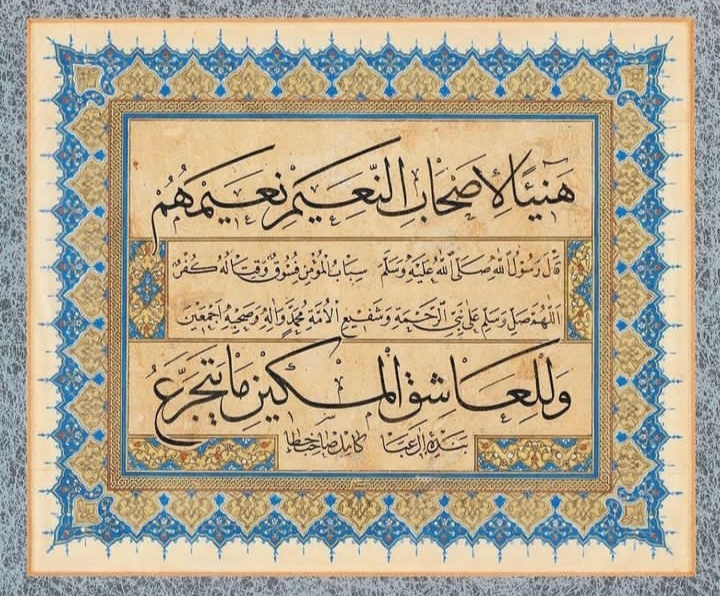 هَنِيئًا لِأَصْحَابِ النَّعِيمِ نَعِيمَهُمُ
قَالَ رَسُولُ اللهِ صَلَّى اللهُ عَلَيْهِ وَسَلَّمَ سِبَابُ الْمُؤْمِنِ فُسُوقٌ وَقِتَالُهُ كُفْرٌ
اَللّٰهُمَّ صَلِّ وَسَلِّمْ عَلَى نَبِيِّ الرَّحْمَةِ وَشَفِيعِ الْأُمَّةِ مُحَمَّدٍ وَآلِهِ وَصَحْبِهِ أَجْمَعِينَ
وَلِلْعَاشِقِ الْمِسْكِينِ مَا يَتَجَرَّعُ
بنده آل عبا